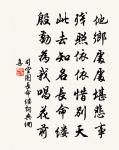 他鄉處處堪悲事
殘照依依惜別天
此去知名長命縷
殷勤為我唱花前
司空圖長命縷詞典網